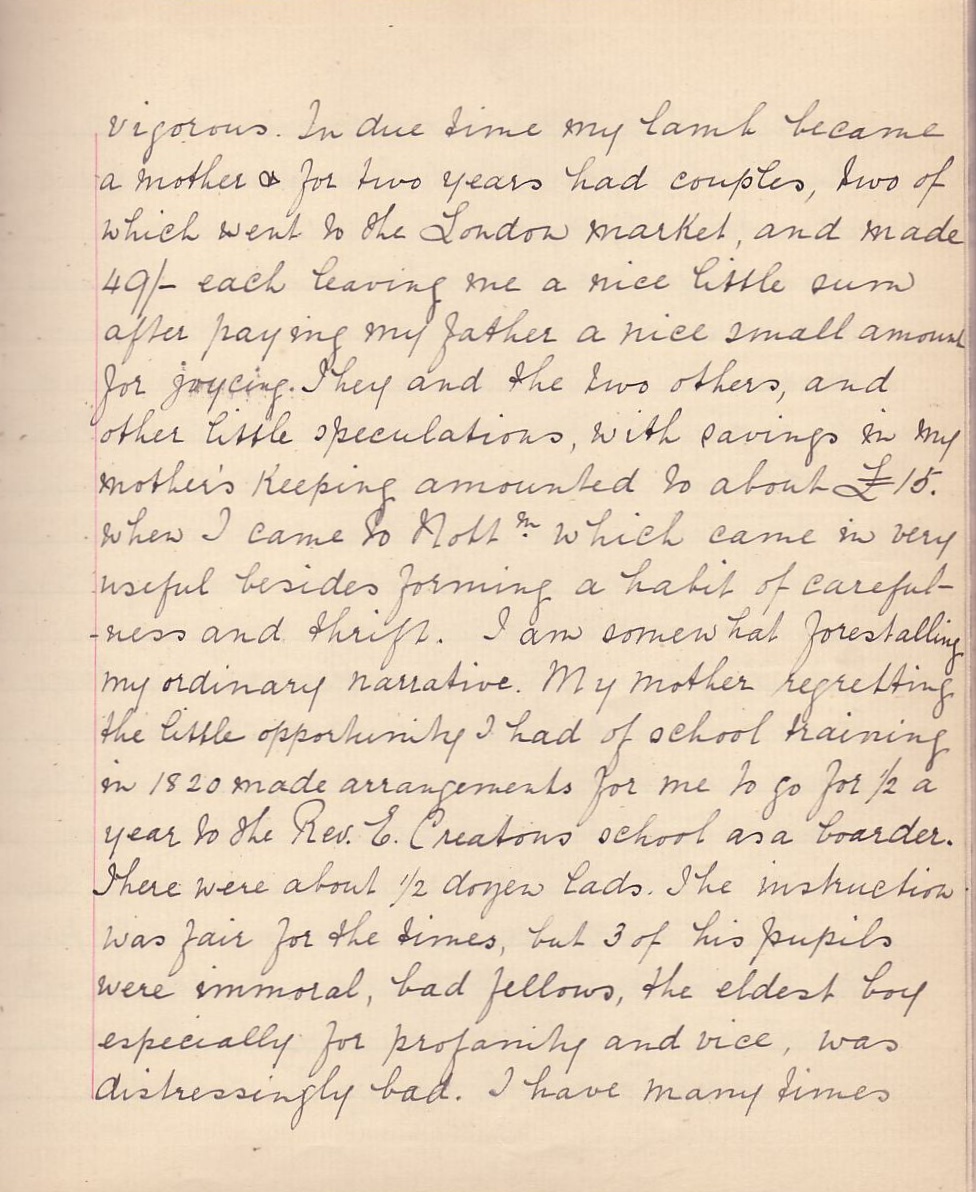 vigorous. In due time my lamb became
a mother & for two years had couples, two of
which went to the London market, and made
49/- each leaving me a nice little sum
after paying my father a nice small amount
for joycing. They and the two others, and
other little speculations, with savings in my
mother's keeping amounted to about £15.
when I came to Nottm. which came in very
useful besides forming a habit of careful-
-ness and thrift. I am somewhat forestalling
my ordinary narrative. My mother regretting
the little opportunity I had of school training
in 1820 made arrangements for me to go for 1/2 a
year to the Rev. E. Creatons school as a boarder.
There were about 1/2 dozen lads. The instruction
was fair for the times, but 3 of his pupils
were immoral, bad fellows, the eldest boy
especially for profanity and vice, was
distressingly bad. I have many times